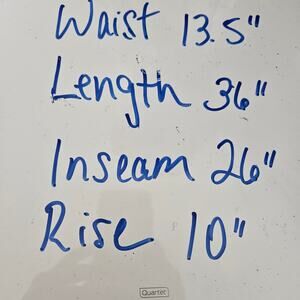 Waist 13.5"
Length 36"
Inseam 26"
Rise 10"
Quartet